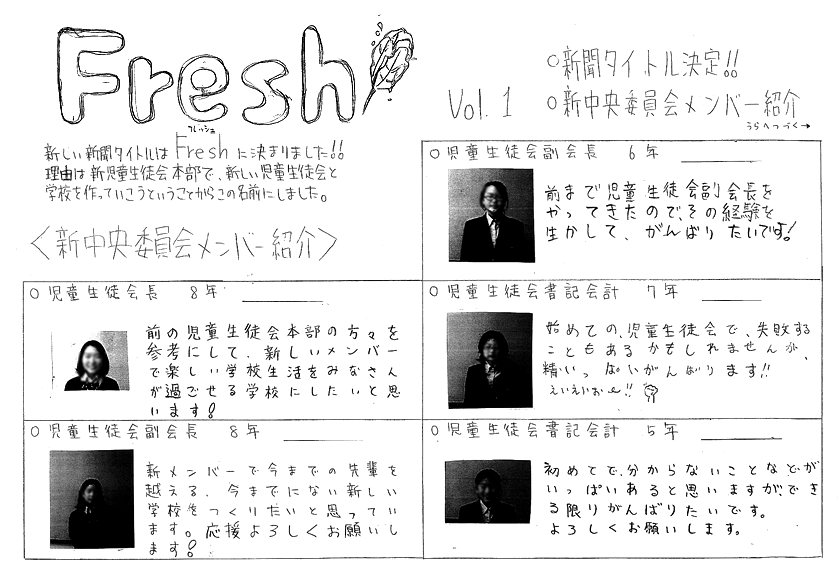 Fresh
フレッシュ
Vol. 1
○新聞タイトル決定!!
○新中央委員会メンバー紹介
うらへつづく→
新しい新聞タイトルは Fresh に決まりました!!
理由は新児童生徒会本部で、新しい児童生徒会と
学校を作っていこうということからこの名前にしました。
<新中央委員会メンバー紹介>
○児童生徒会長 8年
前の児童生徒会本部の方々を
参考にして、新しいメンバー
で楽しい学校生活をみなさん
が過ごせる学校にしたいと思
います!
○児童生徒会副会長 8年
新メンバーで今までの先輩を
越える、今までにない新しい
学校をつくりたいと思ってい
ます。応援よろしくお願いし
ます!
○児童生徒会副会長 6年
前まで児童生徒会副会長を
やってきたので、その経験を
生かして、がんばりたいです!
○児童生徒会書記会計 7年
始めての、児童生徒会で、失敗する
こともあるかもしれませんが、
精いっぱいがんばります!!
えいえいおー!!
○児童生徒会書記会計 5年
初めてで、分からないことなどが
いっぱいあると思いますが、でき
る限りがんばりたいです。
よろしくお願いします。